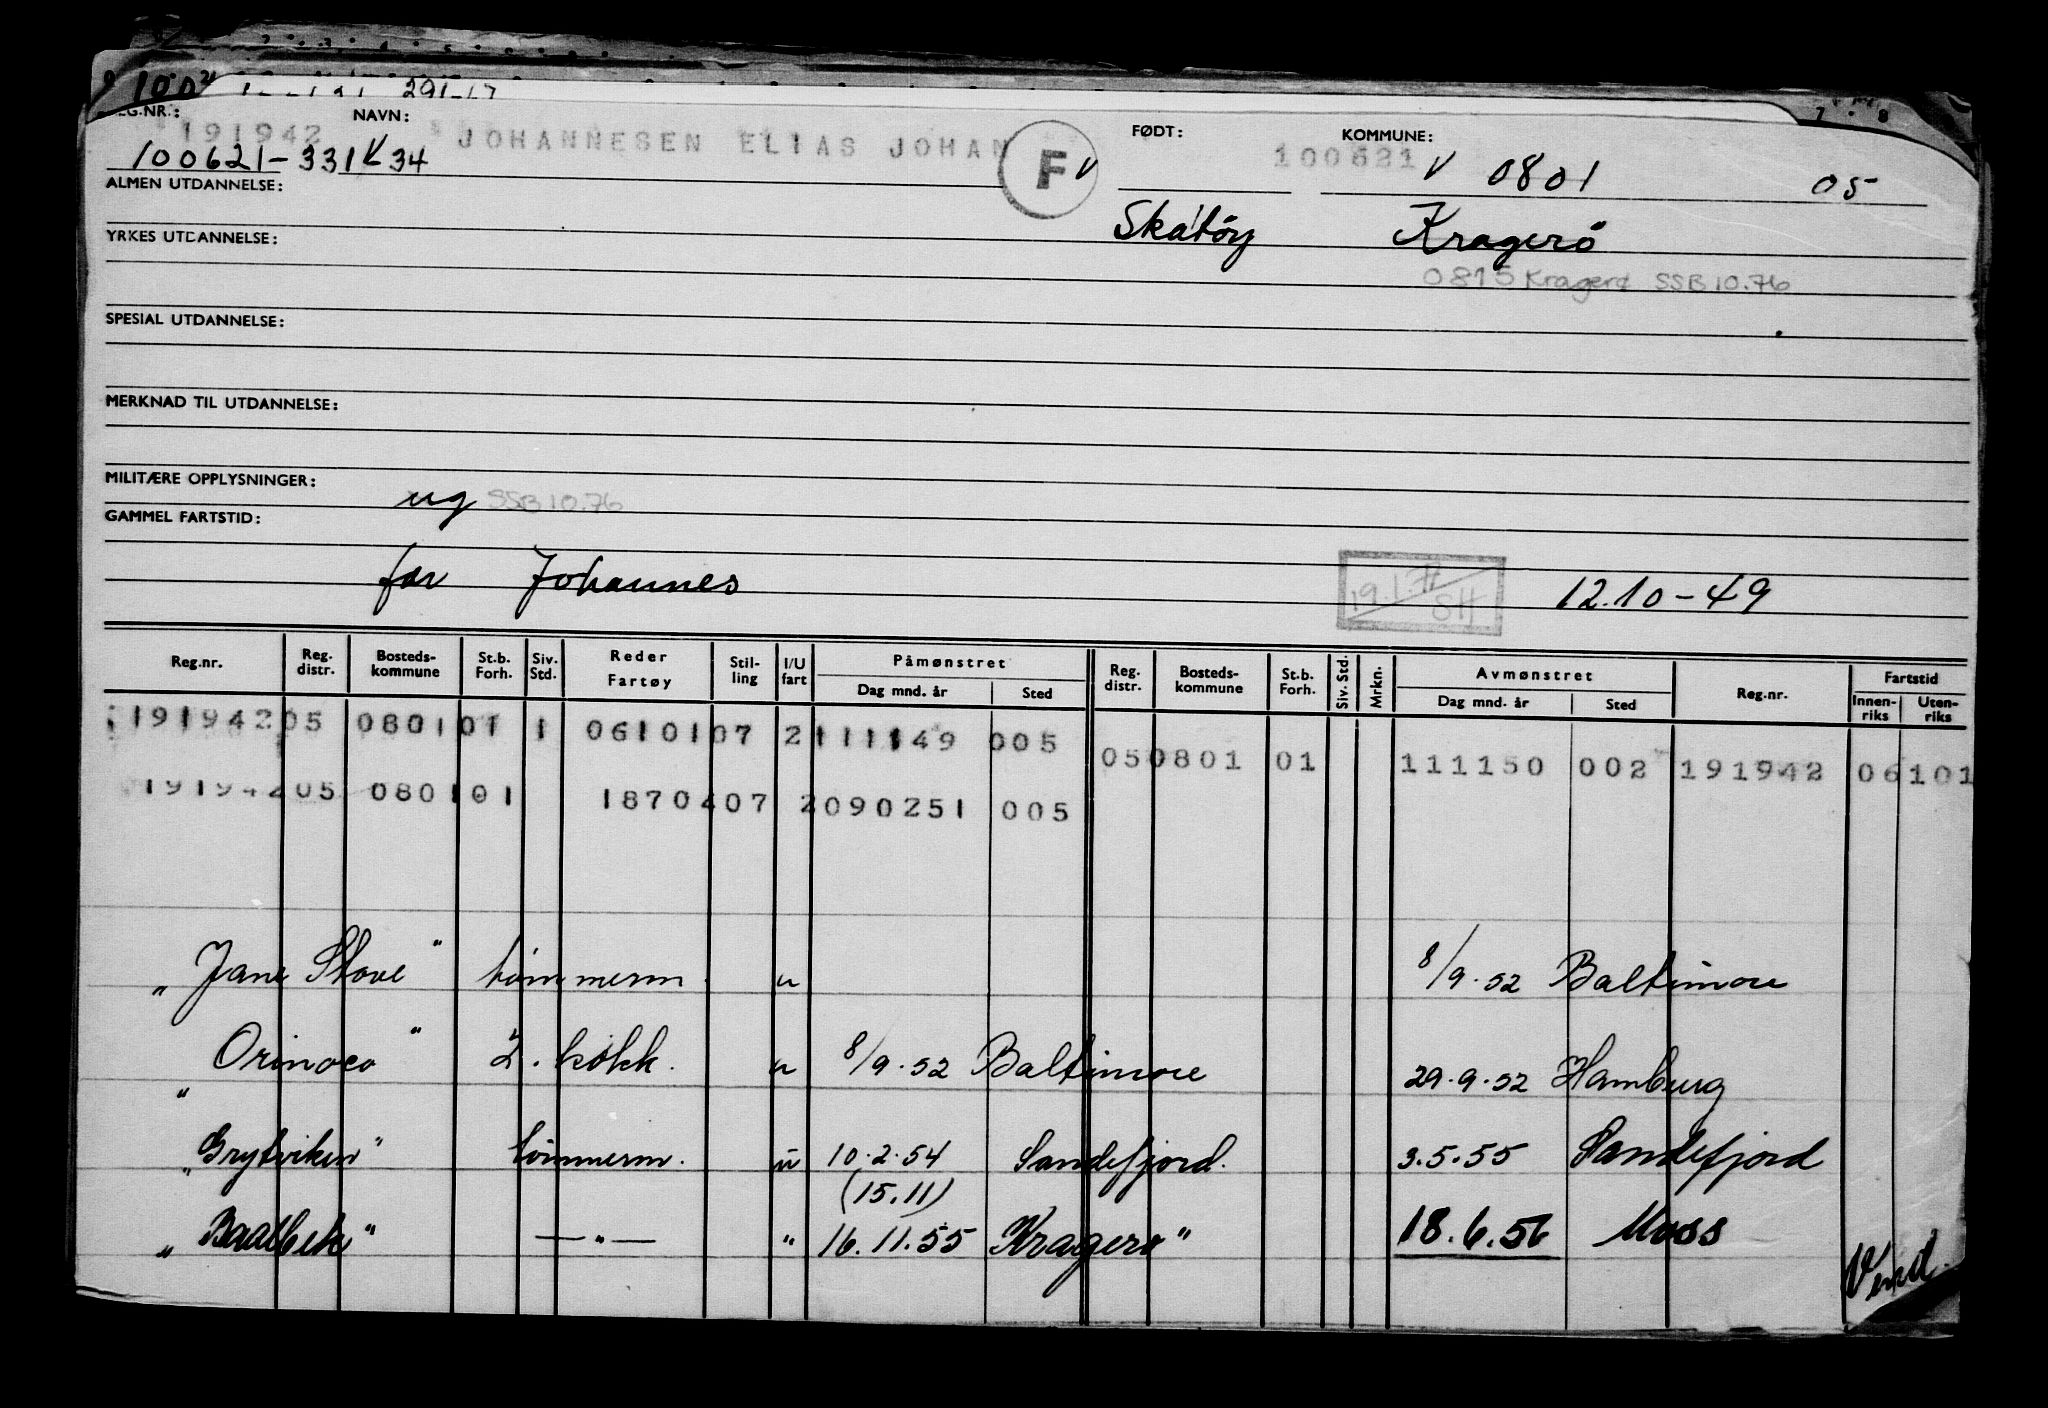 291-17
REG.NR.: NAVN: FØDT: KOMMUNE:
191942 JOHANNESEN ELIAS JOHAN F V 100621
100621-331 V 34 V 0801 05
ALMEN UTDANNELSE:
Skåtöy Kragerö
YRKES UTDANNELSE:
0815 Kragerø SSB 10.76
SPESIAL UTDANNELSE:
MERKNAD TIL UTDANNELSE:
MILITÆRE OPPLYSNINGER:
ug SSB 10.76
GAMMEL FARTSTID:
far Johannes 12.10-49
Reg.nr. Reg. distr. Bosteds-kommune St.b. Forh. Siv. Std. Reder Fartøy Stil-ling I/U fart Påmønstret Dag mnd. år Sted Reg. distr. Bosteds-kommune St.b. Forh. Siv. Std. Mrkn. Avmønstret Dag mnd. år Sted Reg.nr. Fartstid Innen-riks Uten-riks
191942 05 0801 01 1 06101 07 2 111149 005 05 0801 01 111150 002 191942 06 101
191942 05 0801 01 18704 07 2 090251 005
„Jane Stove" tømmerm. u 8/9.52 Baltimore
„Orinoco" 2. kokk. u 8/9.52 Baltimore 29.9.52 Hamburg
„Grytviken" tömmerm. u 10.2.54 Sandefjord. 3.5.55 Sandefjord
(15.11)
„Baalbek" —"— " 16.11.55 Kragerø" 18.6.56 Moss
Vend.